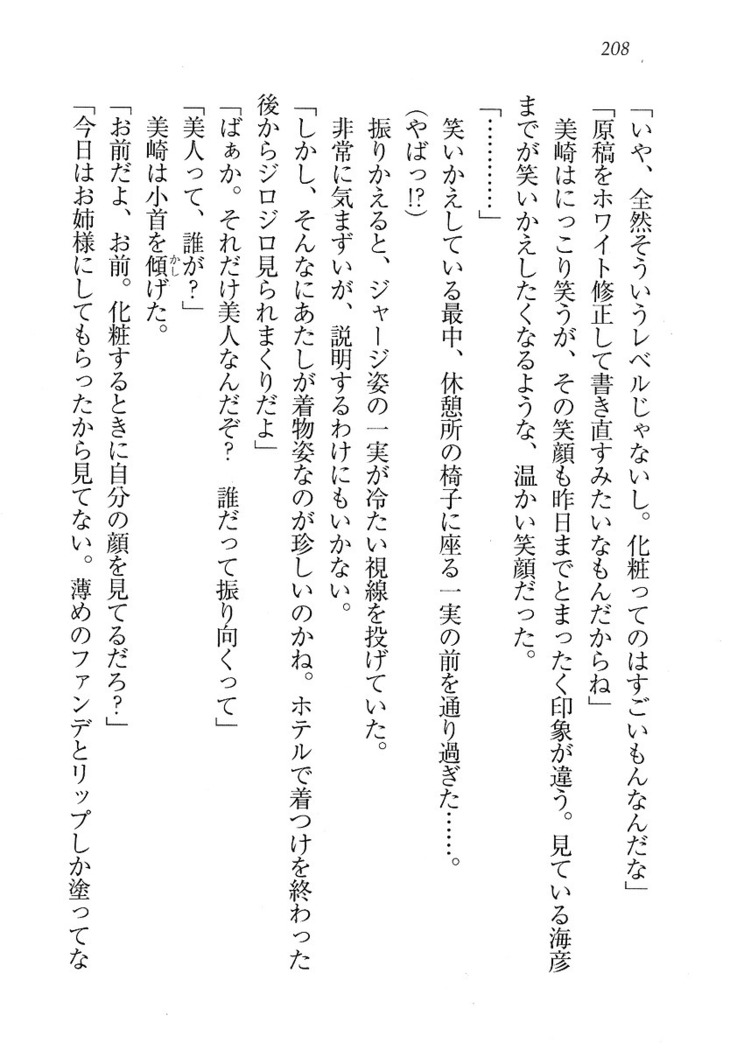 208
「いや、全然そういうレベルじゃないし。化粧ってのはすごいもんなんだな」
「原稿をホワイト修正して書き直すみたいなもんだからね」
美崎はにっこり笑うが、その笑顔も昨日までとまったく印象が違う。見ている海彦
までが笑いかえしたくなるような、温かい笑顔だった。
「…………」
笑いかえしている最中、休憩所の椅子に座る一実の前を通り過ぎた……。
(やばっ!?)
振りかえると、ジャージ姿の一実が冷たい視線を投げていた。
非常に気まずいが、説明するわけにもいかない。
「しかし、そんなにあたしが着物姿なのが珍しいのかね。ホテルで着つけを終わった
後からジロジロ見られまくりだよ」
「ばぁか。それだけ美人なんだぞ?　誰だって振り向くって」
「美人って、誰が?」
美崎は小首を傾げた。
かし
「お前だよ、お前。化粧するときに自分の顔を見てるだろ?」
「今日はお姉様にしてもらったから見てない。薄めのファンデとリップしか塗ってな